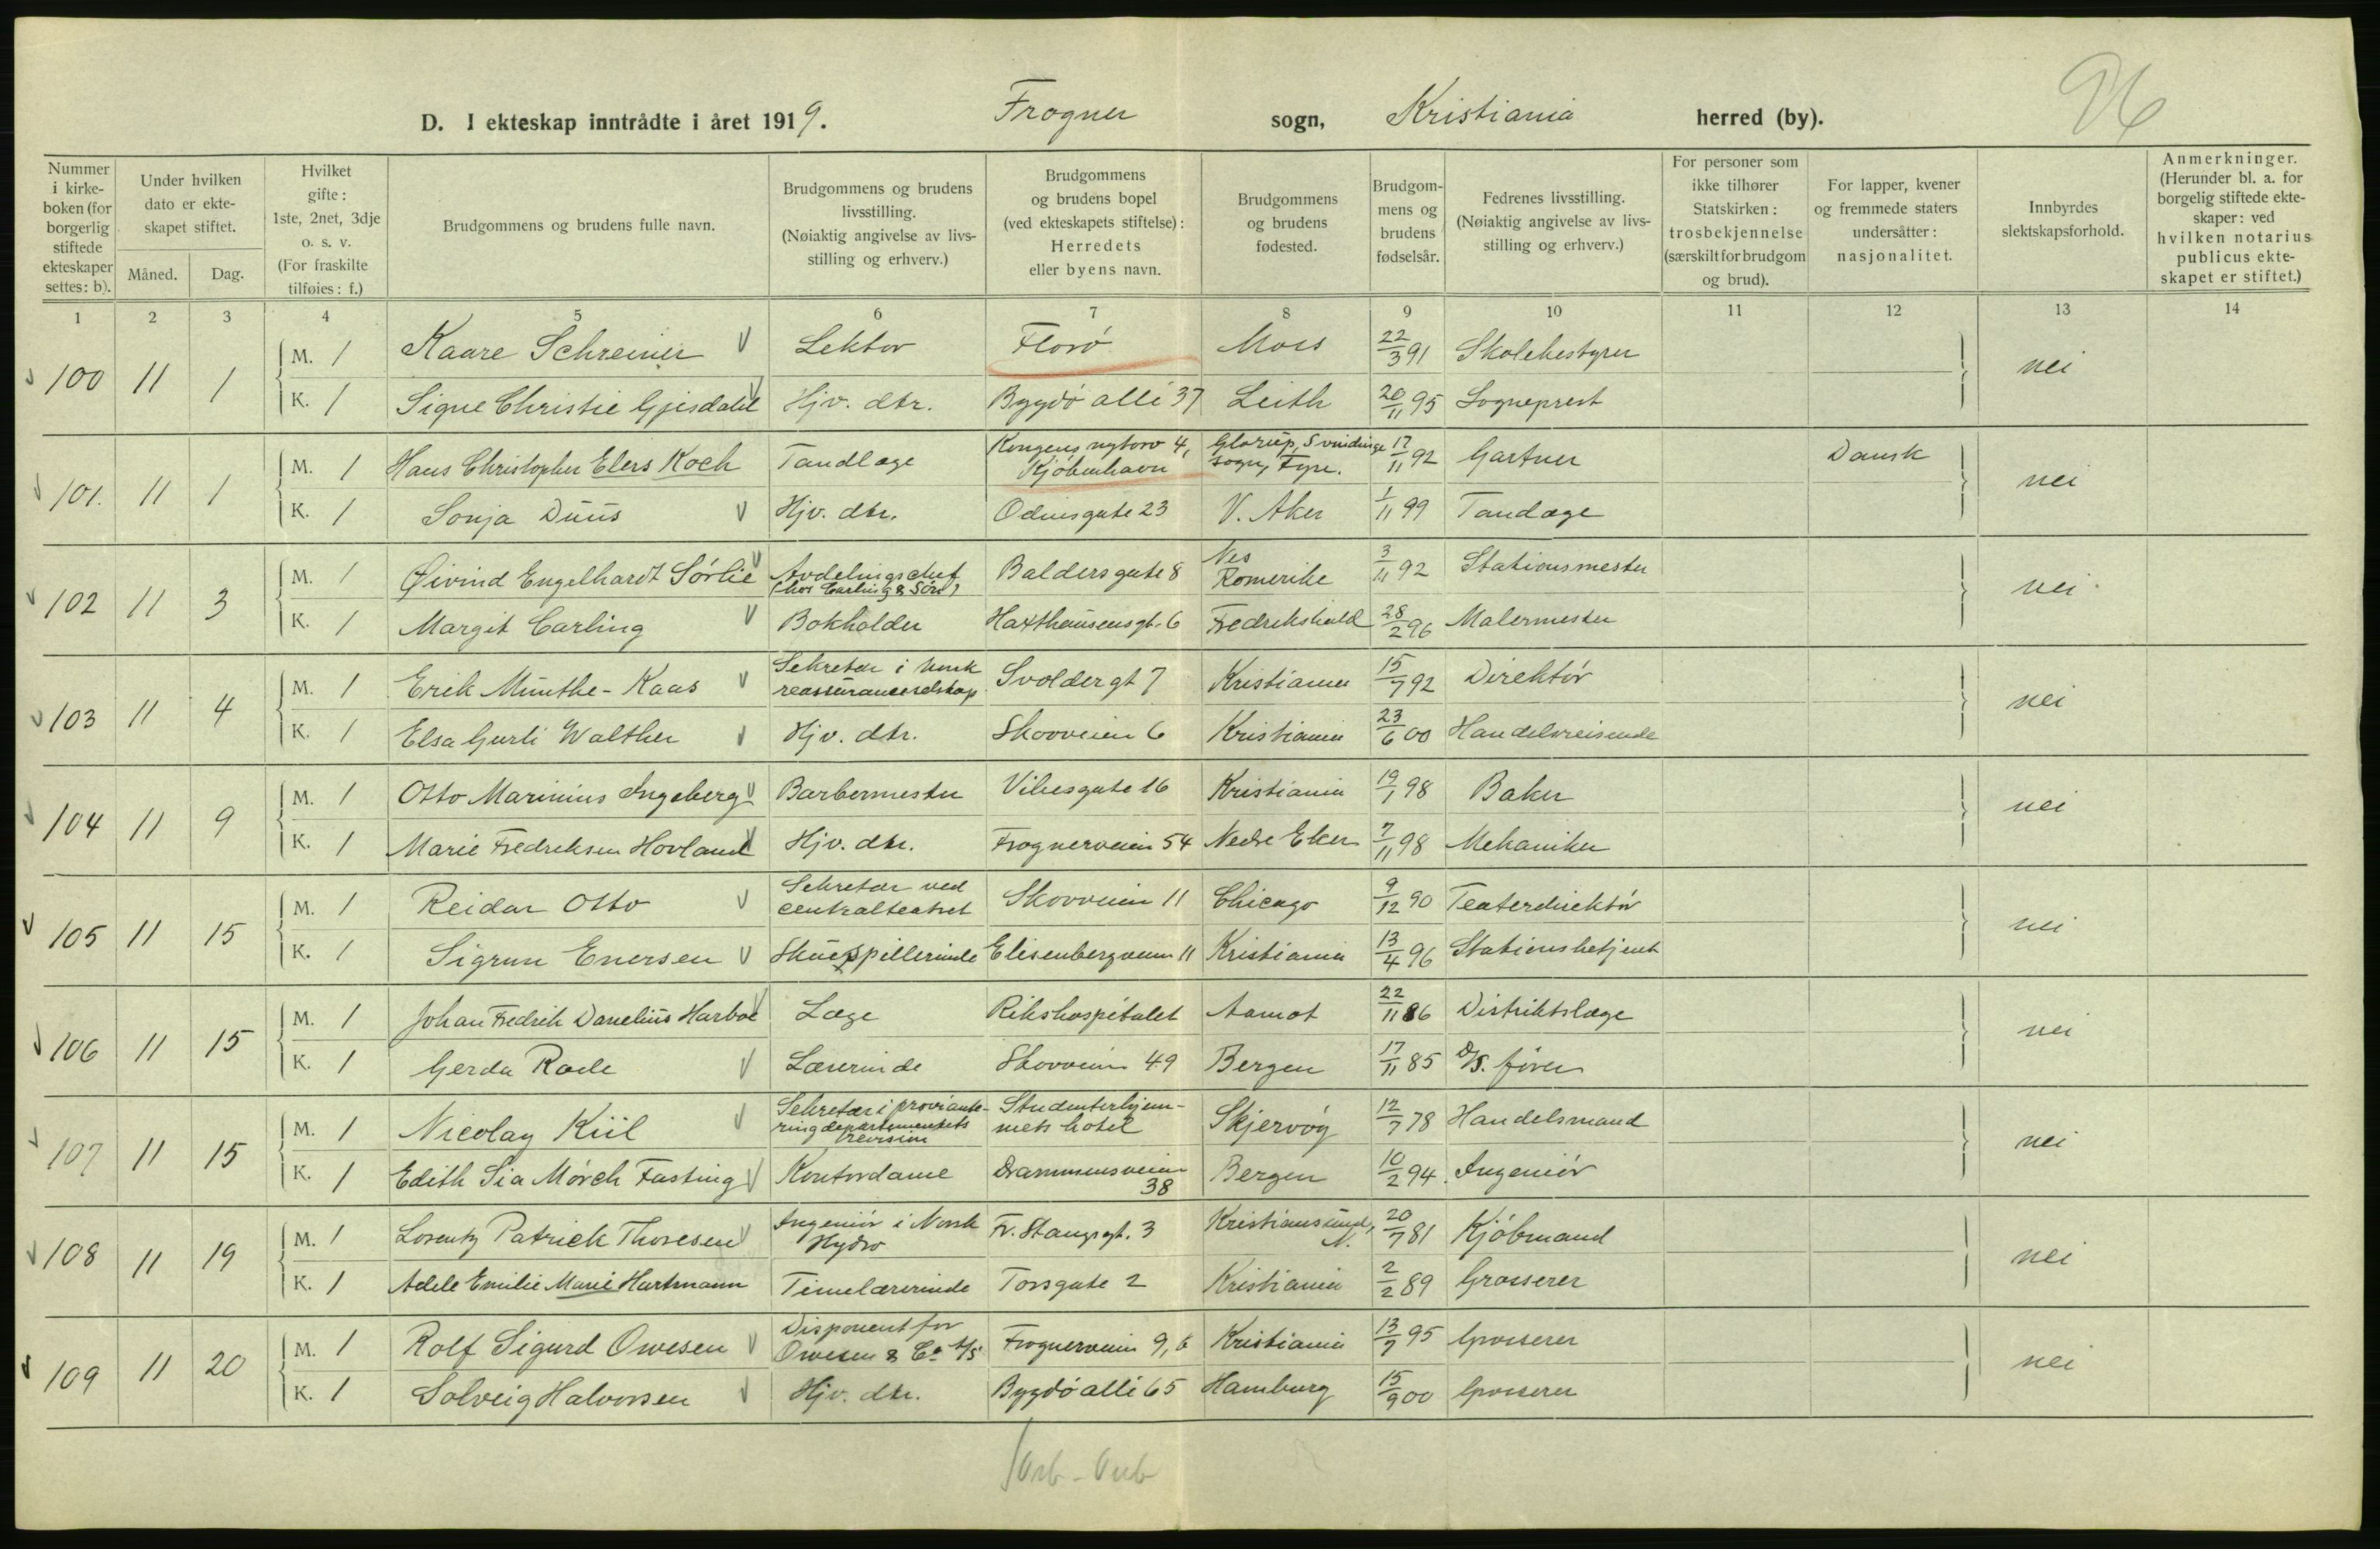 96
D. I ekteskap inntrådte i året 1919. Frogner sogn, Kristiania herred (by).
Nummer i kirkeboken (for borgerlig stiftede ekteskaper settes: b).
Under hvilken dato er ekteskapet stiftet.
Måned. Dag.
Hvilket gifte: 1ste, 2net, 3dje o. s. v. (For fraskilte tilføies: f.)
Brudgommens og brudens fulle navn.
Brudgommens og brudens livsstilling. (Nøiaktig angivelse av livsstilling og erhverv.)
Brudgommens og brudens bopel (ved ekteskapets stiftelse): Herredets eller byens navn.
Brudgommens og brudens fødested.
Brudgommens og brudens fødselsår.
Fedrenes livsstilling. (Nøiaktig angivelse av livsstilling og erhverv.)
For personer som ikke tilhører Statskirken: trosbekjennelse (særskilt for brudgom og brud).
For lapper, kvener og fremmede staters undersåtter: nasjonalitet.
Innbyrdes slektskapsforhold.
Anmerkninger. (Herunder bl. a. for borgelig stiftede ekteskaper: ved hvilken notarius publicus ekteskapet er stiftet.)
1 2 3 4 5 6 7 8 9 10 11 12 13 14
100 11 1 M. 1 Kaare Schreiner Lektor Florö Moss 22/3 91 Skolebestyrer nei
K. 1 Signe Christie Gjesdahl Hjv. dtr. Bygdö allé 37 Leith 20/11 95 Sogneprest
101. 11 1 M. 1 Hans Christopher Elers Koch Tandlæge Kongens nytorv 4, Kjöbenhavn Glorup, Svindinge sogn, Fyn. 17/11 92 Gartner Dansk nei
K. 1 Sonja Duus Hjv. dtr. Odinsgate 23 V. Aker 1/11 99 Tandæge
102 11 3 M. 1 Øivind Engelhardt Sörlie Avdelingschef (hos Carling & Sön) Baldersgate 8 Nes Romerike 3/11 92 Stationsmester nei
K. 1 Margit Carling Bokholder Haxthausensgt. 6 Fredrikshald 28/2 96 Malermester
103 11 4 M. 1 Erik Munthe-Kaas Sekretær i norsk reassuranceselskap Svoldergt 7 Kristiania 15/7 92 Direktör nei
K. 1 Elsa Gurli Walther Hjv. dtr. Skovveien 6 Kristiania 23/6 00 Handelsreisende
104 11 9 M. 1 Otto Marinius Ingeberg Barbermester Vibesgate 16 Kristiania 19/1 98 Baker nei
K. 1 Marie Fredriksen Hovland Hjv. dtr. Frognerveien 54 Nedre Eker 7/11 98 Mekaniker
105 11 15 M. 1 Reidar Otto Sekretær ved centralteatret Skovveien 11 Chicago 9/12 90 Teaterdirektör nei
K. 1 Sigrun Enersen Skuespillerinde Elisenbergveien 11 Kristiania 13/4 96 Stationsbetjent
106 11 15 M. 1 Johan Fredrik Danelius Harboe Læge Rikshospitalet Aamot 22/11 86 Distriktslæge nei
K. 1 Gerda Rode Lærerinde Skovveien 49 Bergen 17/11 85 D/S. förer
107 11 15 M. 1 Nicolay Kiil Sekretær i provianteringsdepartementets revision Studenterhjemmets hotel Skjervöy 12/7 78 Handelsmand nei
K. 1 Edith Sia Mörch Fasting Kontordame Drammensveien 38 Bergen 10/2 94. Ingeniör
108 11 19 M. 1 Lorentz Patrick Thoresen Ingeniör i Norsk Hydro Fr. Stangsgt. 3 Kristiansund, N. 20/7 81 Kjöbmand nei
K. 1 Adele Emilie Marie Hartmann Timelærerinde Torsgate 2 Kristiania 2/2 89 Grosserer
109 11 20 M. 1 Rolf Sigurd Owesen Disponent for Owesen & Co A/S Frognerveien 9, b Kristiania 13/7 95 Grosserer nei
K. 1 Solveig Halvorsen Hjv. dtr. Bygdö allé 65 Hamburg 15/9 00 Grosserer